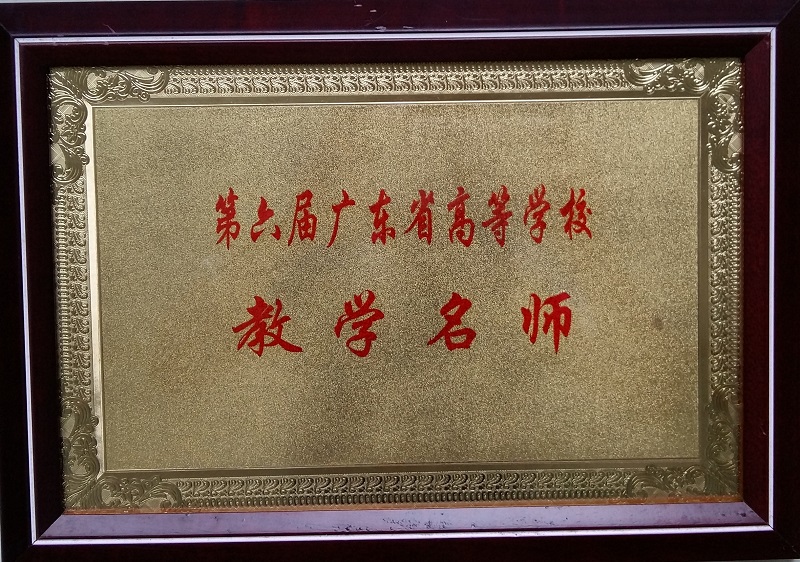 第六届广东省高等学校
教学名师